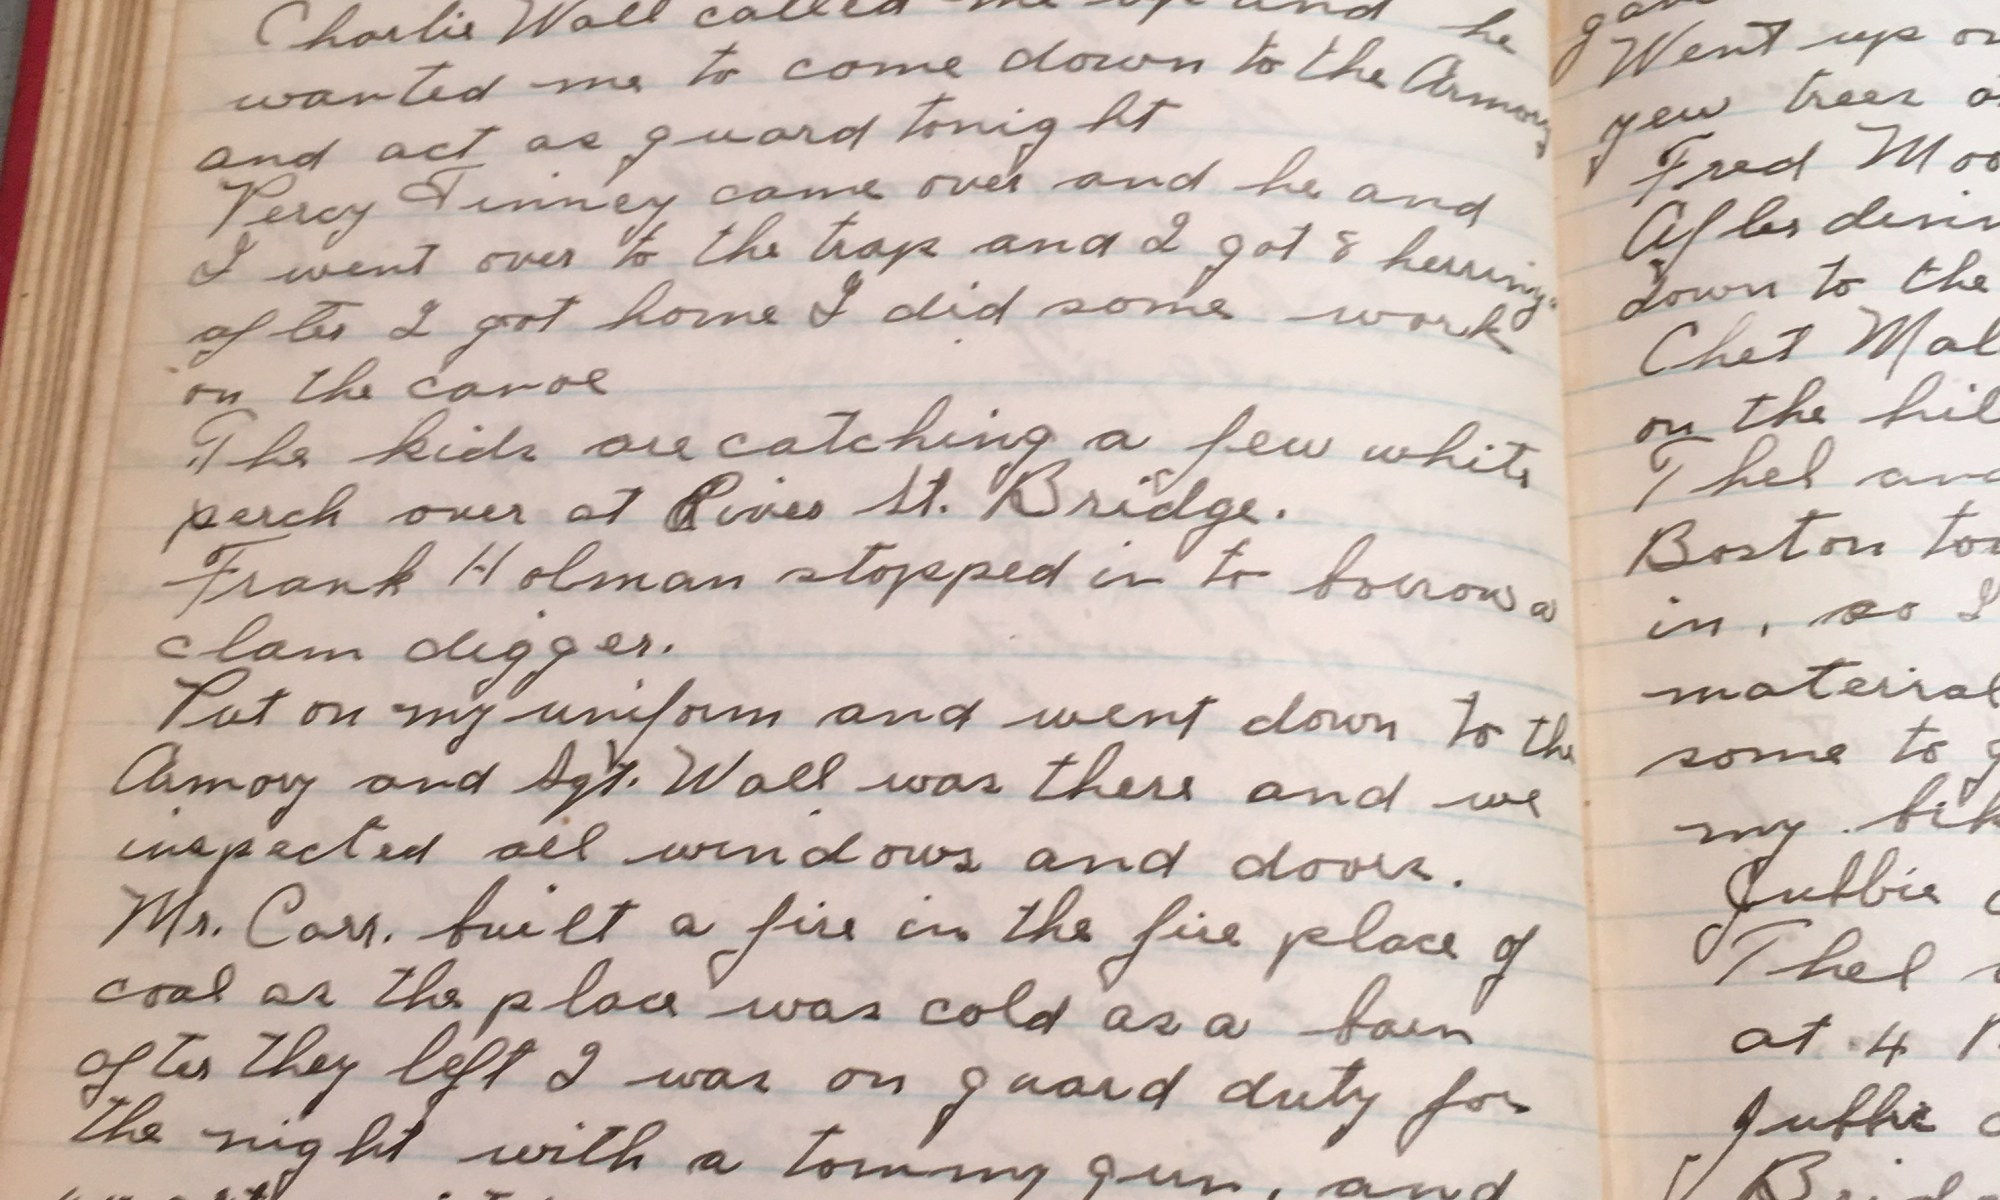 Charlie Wall called me up and he
wanted me to come down to the Armory
and act as guard tonight
Percy Tinney came over and he and
I went over to the trap and I got 8 herring.
after I got home I did some work
on the canoe
The kids are catching a few white
perch over at River St. Bridge.
Frank Holman stopped in to borrow a
clam digger.
Put on my uniform and went down to the
Armory and Sgt. Wall was there and we
inspected all windows and doors.
Mr. Carr. built a fire in the fire place of
coal as the place was cold as a barn
after they left I was on guard duty for
the night with a tommy gun, and
Went up
yew trees
Fred
After
down to the
Chet
on the
Thel and
Boston
in, so I
material
some to
my
Jubbie
Thel
at 4
Jubbie